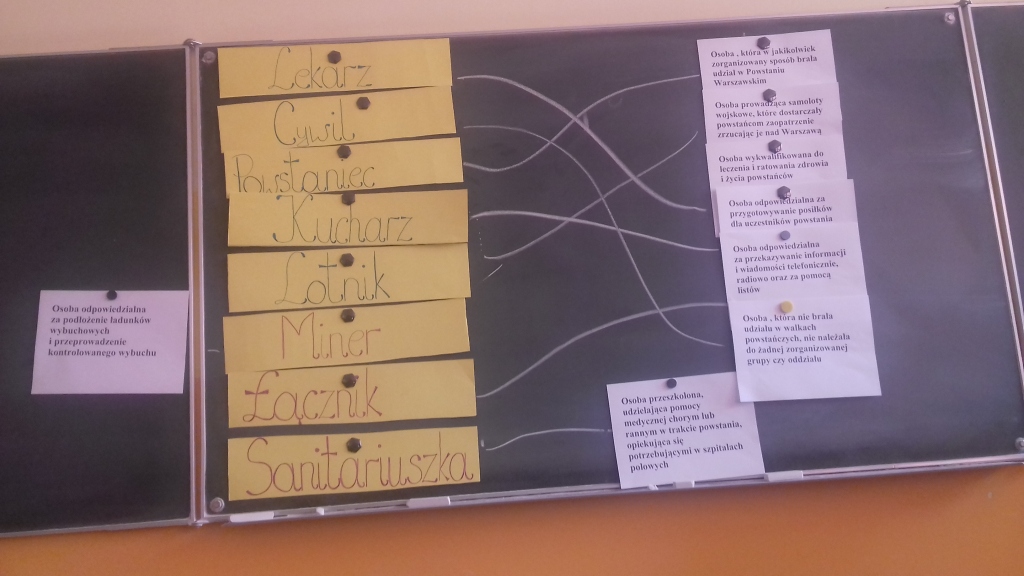 Osoba odpowiedzialna
za podłożenie ładunków
wybuchowych
i przeprowadzenie
kontrolowanego wybuchu
Lekarz
Cywil
Powstaniec
Kucharz
Lotnik
Miner
Łącznik
Sanitariuszka
Osoba , która w jakikolwiek
zorganizowany sposób brała
udział w Powstaniu
Warszawskim
Osoba prowadząca samoloty
wojskowe, które dostarczały
powstańcom zaopatrzenie
zrzucając je nad Warszawą
Osoba wykwalifikowana do
leczenia i ratowania zdrowia
i życia powstańców
Osoba odpowiedzialna za
przygotowywanie posiłków
dla uczestników powstania
Osoba odpowiedzialna
za przekazywanie informacji
i wiadomości telefonicznie,
radiowo oraz za pomocą
listów
Osoba , która nie brała
udziału w walkach
powstańczych, nie należała
do żadnej zorganizowanej
grupy czy oddziału
Osoba przeszkolona,
udzielająca pomocy
medycznej chorym lub
rannym w trakcie powstania,
opiekująca się
potrzebującymi w szpitalach
polowych